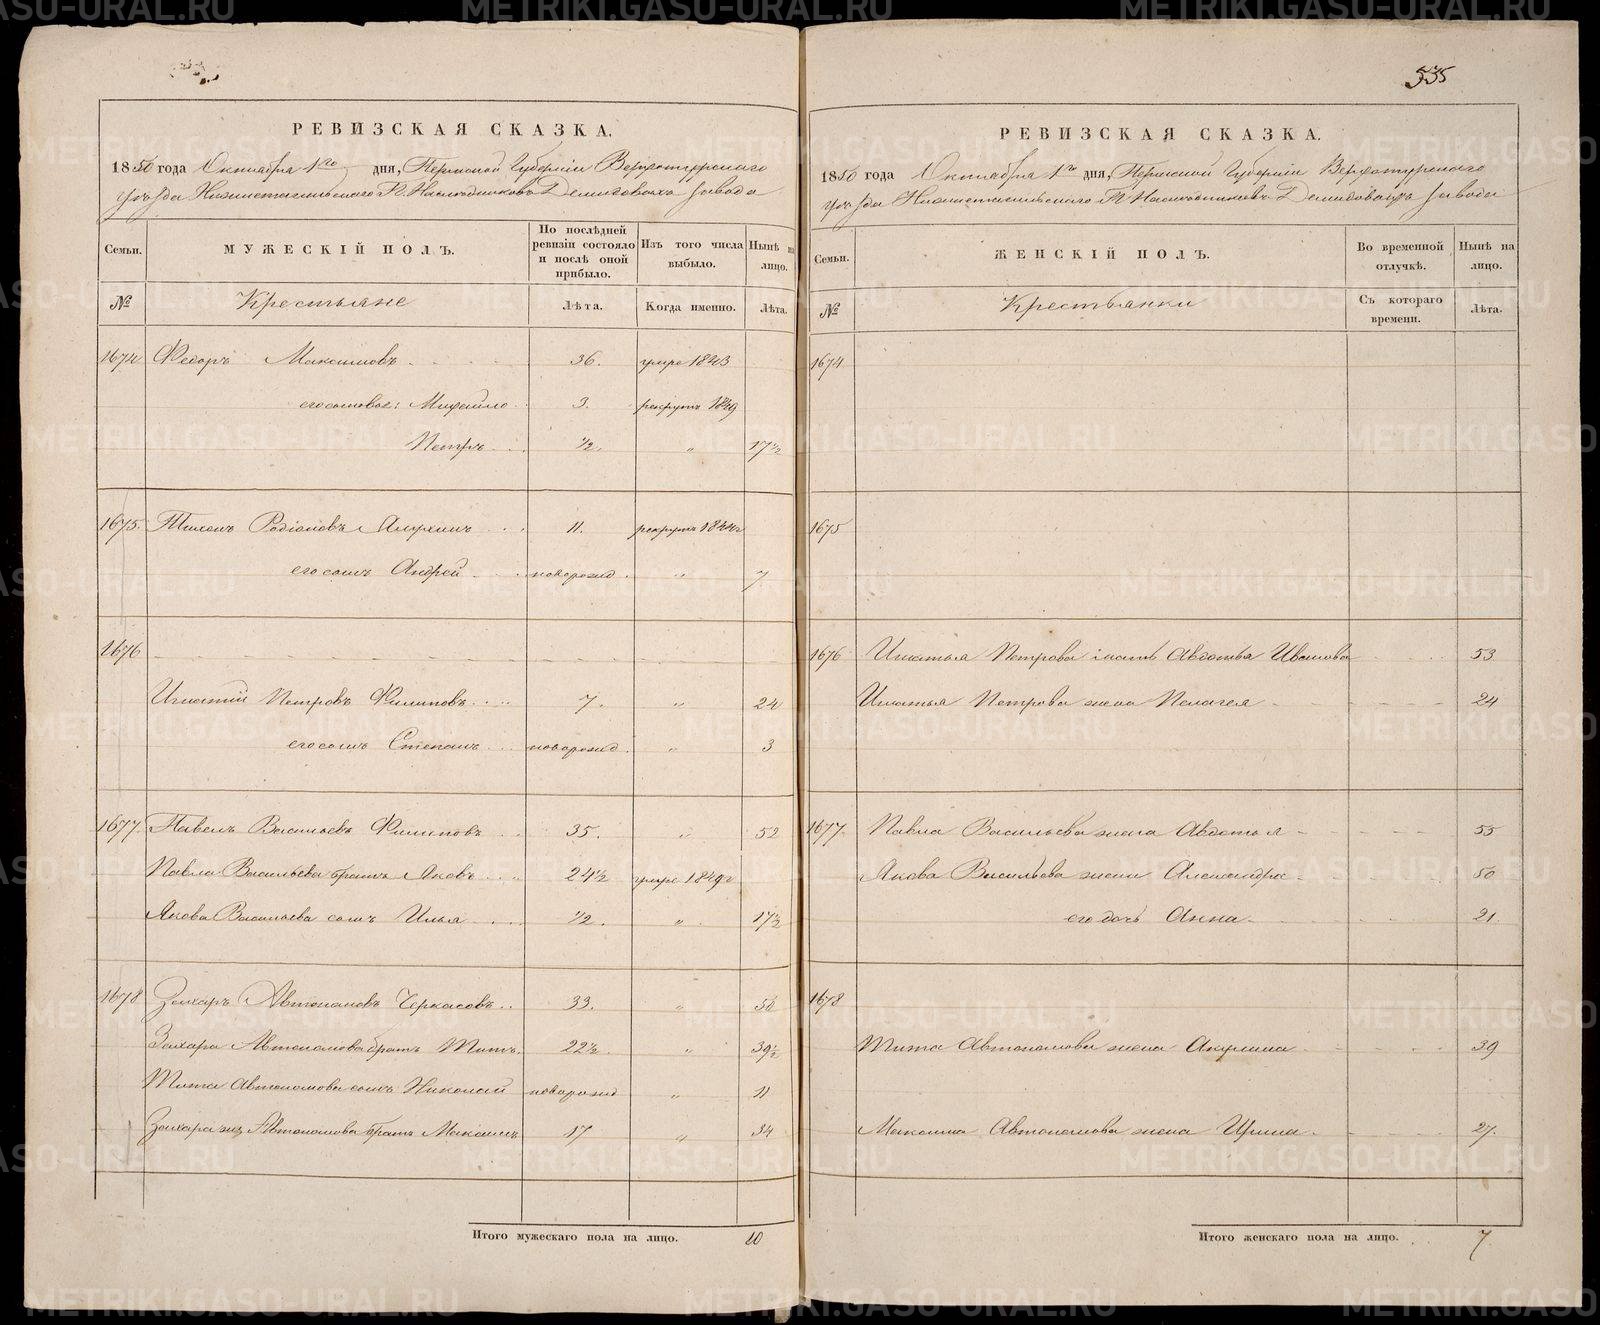 РЕВИЗСКАЯ СКАЗКА.
1850 года Октября 1го дня, Пермской Губернии Верхотурского
уѣзда Нижнетагильского Г. Наслѣдниковъ Демидовыхъ завода
Семьи.
МУЖЕСКІЙ ПОЛЪ.
По послѣдней ревизіи состояло и послѣ оной прибыло.
Изъ того числа выбыло.
Нынѣ на лицо.
№
Крестьяне
Лѣта.
Когда именно.
Лѣта.
1674 Федоръ Максимовъ 36. умре 1843
его сыновья: Михайло 3. рекрутъ 1849
Петръ ½. " 17½
1675. Тихонъ Родіоновъ 11. рекрутъ 1844
его сынъ Андрей новорожд. " 7
1676
Игнатій Петровъ Филиповъ 7. " 24
его сынъ Степанъ новорожд. " 3
1677 Павелъ Васильевъ Филиповъ 35. " 52
Павла Васильева братъ Яковъ 24½ умре 1849г
Якова Васильева сынъ Илья ½. " 17½
1678 Захаръ Автономовъ Черкасовъ 33. " 50
Захара Автономова братъ Титъ 22½ " 39½
Тита Автономова сынъ Николай новорожд " 11
Захара Автономова братъ Максимъ 17 " 34
Итого мужескаго пола на лицо. 10
535
РЕВИЗСКАЯ СКАЗКА.
1850 года Октября 1го дня, Пермской Губерніи Верхотурского
уѣзда Нижнетагильского Г. Наслѣдниковъ Демидовыхъ завода
Семьи.
ЖЕНСКІЙ ПОЛЪ.
Во временной отлучкѣ.
Нынѣ на лицо.
№
Крестьянки
Съ котораго времени.
Лѣта.
1674
1675
1676 Игнатья Петрова мать Авдотья Иванова 53
Игнатья Петрова жена Пелагея 24
1677 Павла Васильева жена Авдотья 55
Якова Васильева жена Александра 50
его дочь Анна 21
1678
Тита Автономова жена Акулина 39
Максима Автономова жена Ирина 27.
Итого женскаго пола на лицо. 7
METRIKI.GASO-URAL.RU